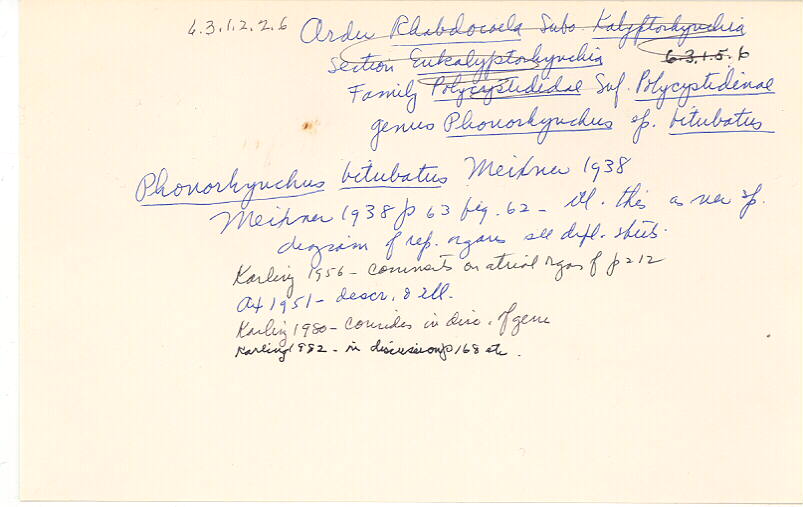 6.3.1.2.2.6 Order Rhabdocoela Subo. Kalyptorhynchia
Section Eukalyptorhynchia 6.3.1.5.6
Family Polycystididae Suf. Polycystidinae
genus Phonorhynchus sp. bitubatus
Phonorhynchus bitubatus Meixner 1938
Meixner 1938 p 63 fig. 62 - ill. this as new sp.
diagram of rep. organs see dupl. sheets.
Karling 1956 - comments on atrial organs p 212
Ax 1951 - descr. & ill.
Karling 1980 - considers in disc. of genu
Karling 1982 - in discussion p 168 etc.